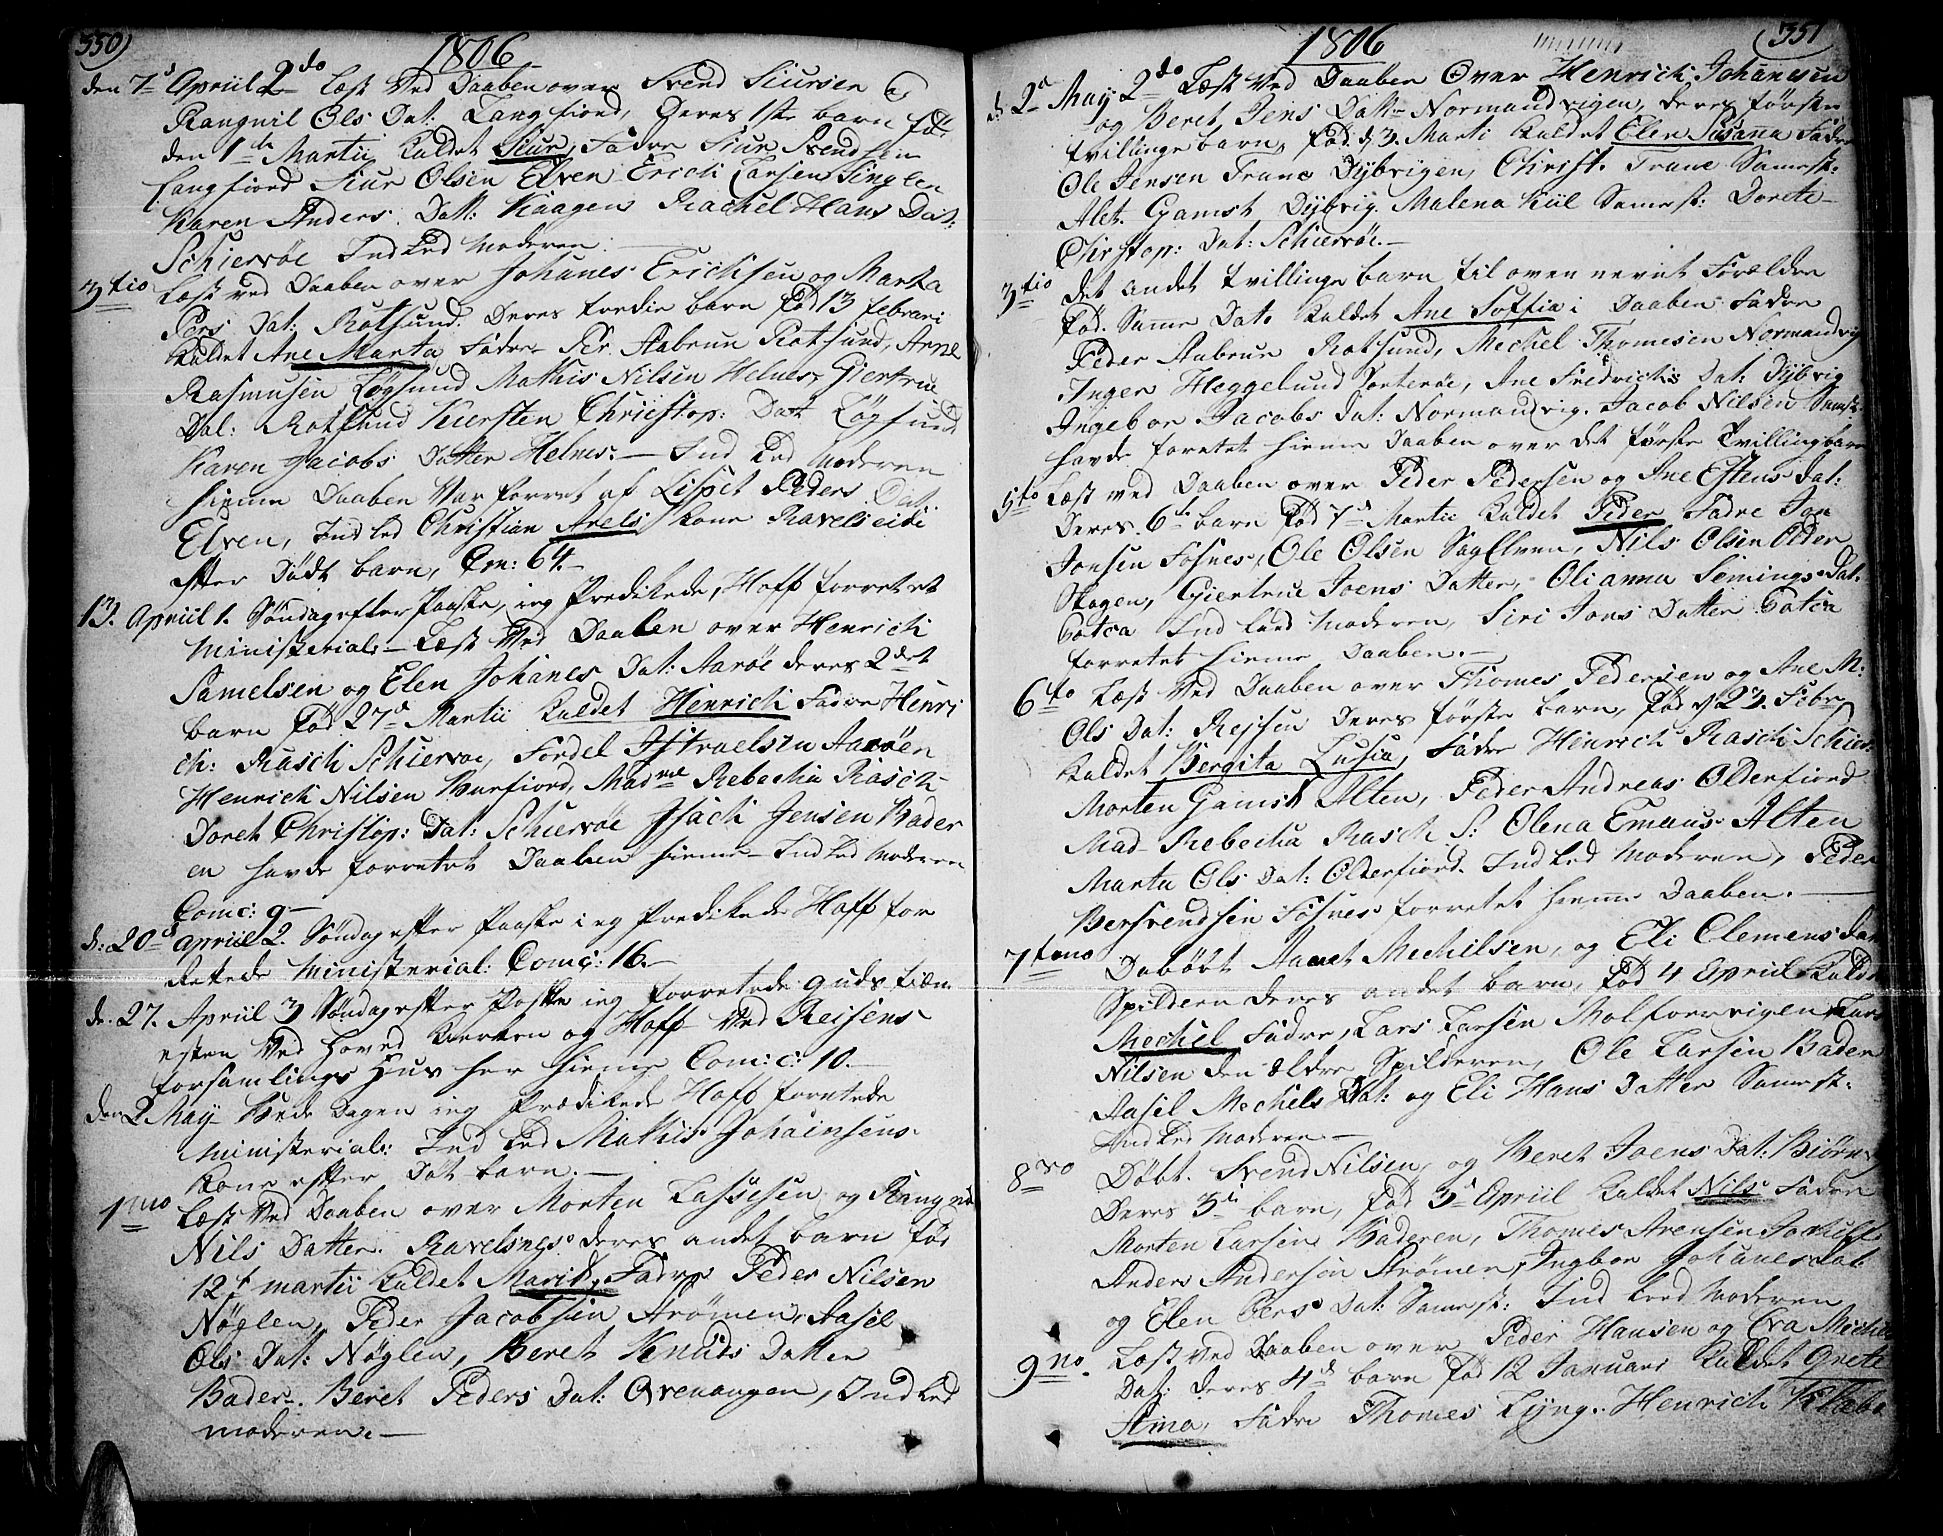 350)
1806
den 7de Apriil 2do Læst Ved Daaben over Svend Siursen og
Rangnil Ols Dat: Langfiord, Deres 1ste barn fød
den 1te Martii kuldet Siur, Fadre Siur Svendsen
Langfiord Siur Olsen Elven Erich Larsen Singlen
Karen Anders Datt: Kaagen Rachel Hans Dat:
Schiervøe Indled Moderen.
3tio Læst ved Daaben over Johanes Erichsen og Marta
Pers Dat: Rotsund. Deres tredie barn fød 13 Februari
kuldet Ane Marta Fadre Per Aabrun Rotsund, Arne
Rasmusen Løgsund Mathis Nilsen Helnes, Giertrue
Dal: Rotsund Kiersten Christop: Datt Løgsund
Karen Jacobs Datter Helnes: — Ind Led Moderen
hieme Daaben Var forret af Lispet Peders Dat:
Elven, Indled Christian Axels kone Ravelseidi
efter Dødt barn, Com: 64.—
13. Apriil 1. Søndag efter Paaske, ieg Predikede, Hoff forrettet
Ministerial: — Læst Ved Daaben over Henrich
Samelsen og Elen Johanes Dat: Aarøe deres 2det
barn fød 27de Martii kuldet Henrich Fadre Henri
ch: Rasch Schiervøe, Fordel Istraelsen Aarøen
Henrich Nilsen Burfiord, Madme Rebecha Rasch
Doret Christop: Dat: Schiervøe Isach Jensen Bader
en havde forrettet Daaben hieme — Indled Moderen
Comc: 9.—
d: 20de Apriil 2. Søndag efter Paaske ieg Predikede Hoff for
rettede Ministerial: Comc: 16.—
d: 27. Apriil 3 Søndag efter Paske ieg forrettede Guds tiæn
esten Ved Hoved kirken og Hoff Ved Reisens
forsamlings Hus her hieme Com:c: 10.—
den 2 May Bede Dagen ieg Prædikede Hoff forrettede
Ministerial: Ind Led Mathis Johainsens
kone efter Døt barn.—
1mo Læst Ved Daaben over Morten Lassesen og Rangnil
Nils Datter. Ravelsnes deres andet barn fød
12t martii kuldet Marit, Fadre Peder Nilsen
Nøglen, Peder Jacobsen Strømen, Aasel
Ols Dat: Nøglen, Beret Knuds Datter
Bader. Beret Peders Dat: Qvenangen, Indled
moderen.—
1806
(351
d 2den May 2do Læst Ved Daaben Over Henrich Johanesen
og Beret Jens Datter Normandvigen, deres første
tvillinge barn, fød. d 3. Marti kuldet Elen Susanna Fadre
Ole Jensen Trane Dybvigen, Christ. Trane Samest:
Alet. Gamst Dybvig. Malena Kiil Samest: Dorete
Christop: Dat: Schiervøe.—
3tio Det andet tvillinge barn til oven nevnt Forældre
fød. Samme Dato kuldet Ane Soffia i Daaben Fadre
Peder Aabrun Rotsund, Mechel Thomesen Normandvig
Inger Heggelund Vorterøe, Ane Fredrichs Dat: Dybvig
Ingebor Jacobs Dat: Normandvig. Jacob Nilsen Samst.
havde forettet hieme Daaben over det første Tvillingbarn
5to Læst ved Daaben over Peder Pedersen og Ane Estens Dat:
Deres 6te barn fød 7de Martii kuldet Peder Fadre Jon
Jonsen Sosnes, Ole Olsen SagElven, Nils Olsen Older
Skogen, Giertrue Joens Datter, Olianna Semings Dat.
Botca Ind Leed Moderen, Siri Jons Datter Botca
forrettet hieme Daaben.—
6to Læst Ved Daaben over Thomes Pedersen og Ane M:
Ols Dat: Rejsen Deres første barn, fød d 23. Febr:
kuldet Bergita Lusia, Fadre Henrich Rasch Schier.
Morten Gamst Alten, Peder Andreas Olderfiord
Mad Rebecha Rasch S: Olena Emaus Alten
Marta Ols Dat: Olderfiord. Indled Moderen, Peder
Bersvendsen Sosnes forrettet hieme Daaben.—
7timo Døbt Aamet Mechilsen, og Eli Clemens Dat
Spilderen deres andet barn, fød 4 Apriil kuldet
Mechel Fadre, Lars Larsen Molforvigen Lars
Nilsen den Eldre Spilderen, Ole Larsen Bader
Aasel Mechels Dat: og Eli Hans Datter Samest:
Indled Moderen.—
8vo Døbt. Svend Nilsen, og Beret Joens Dat: Biørn
Deres 3de barn, fød 3de Apriil kuldet Nils Fadre
Morten Larsen Baderen, Thomes Arensen
Anders Andersen Strømen, Ingbor Johanes Dat
og Elen Pers Dat: Samest: Ind Leed Moderen
9no. Læst Ved Daaben over Peder Hansen og Eva Michels
Dat: deres 4de barn fød 12 Januari kuldet Grete
Stina, Fadre Thomes Lyng. Henrich Klæbo